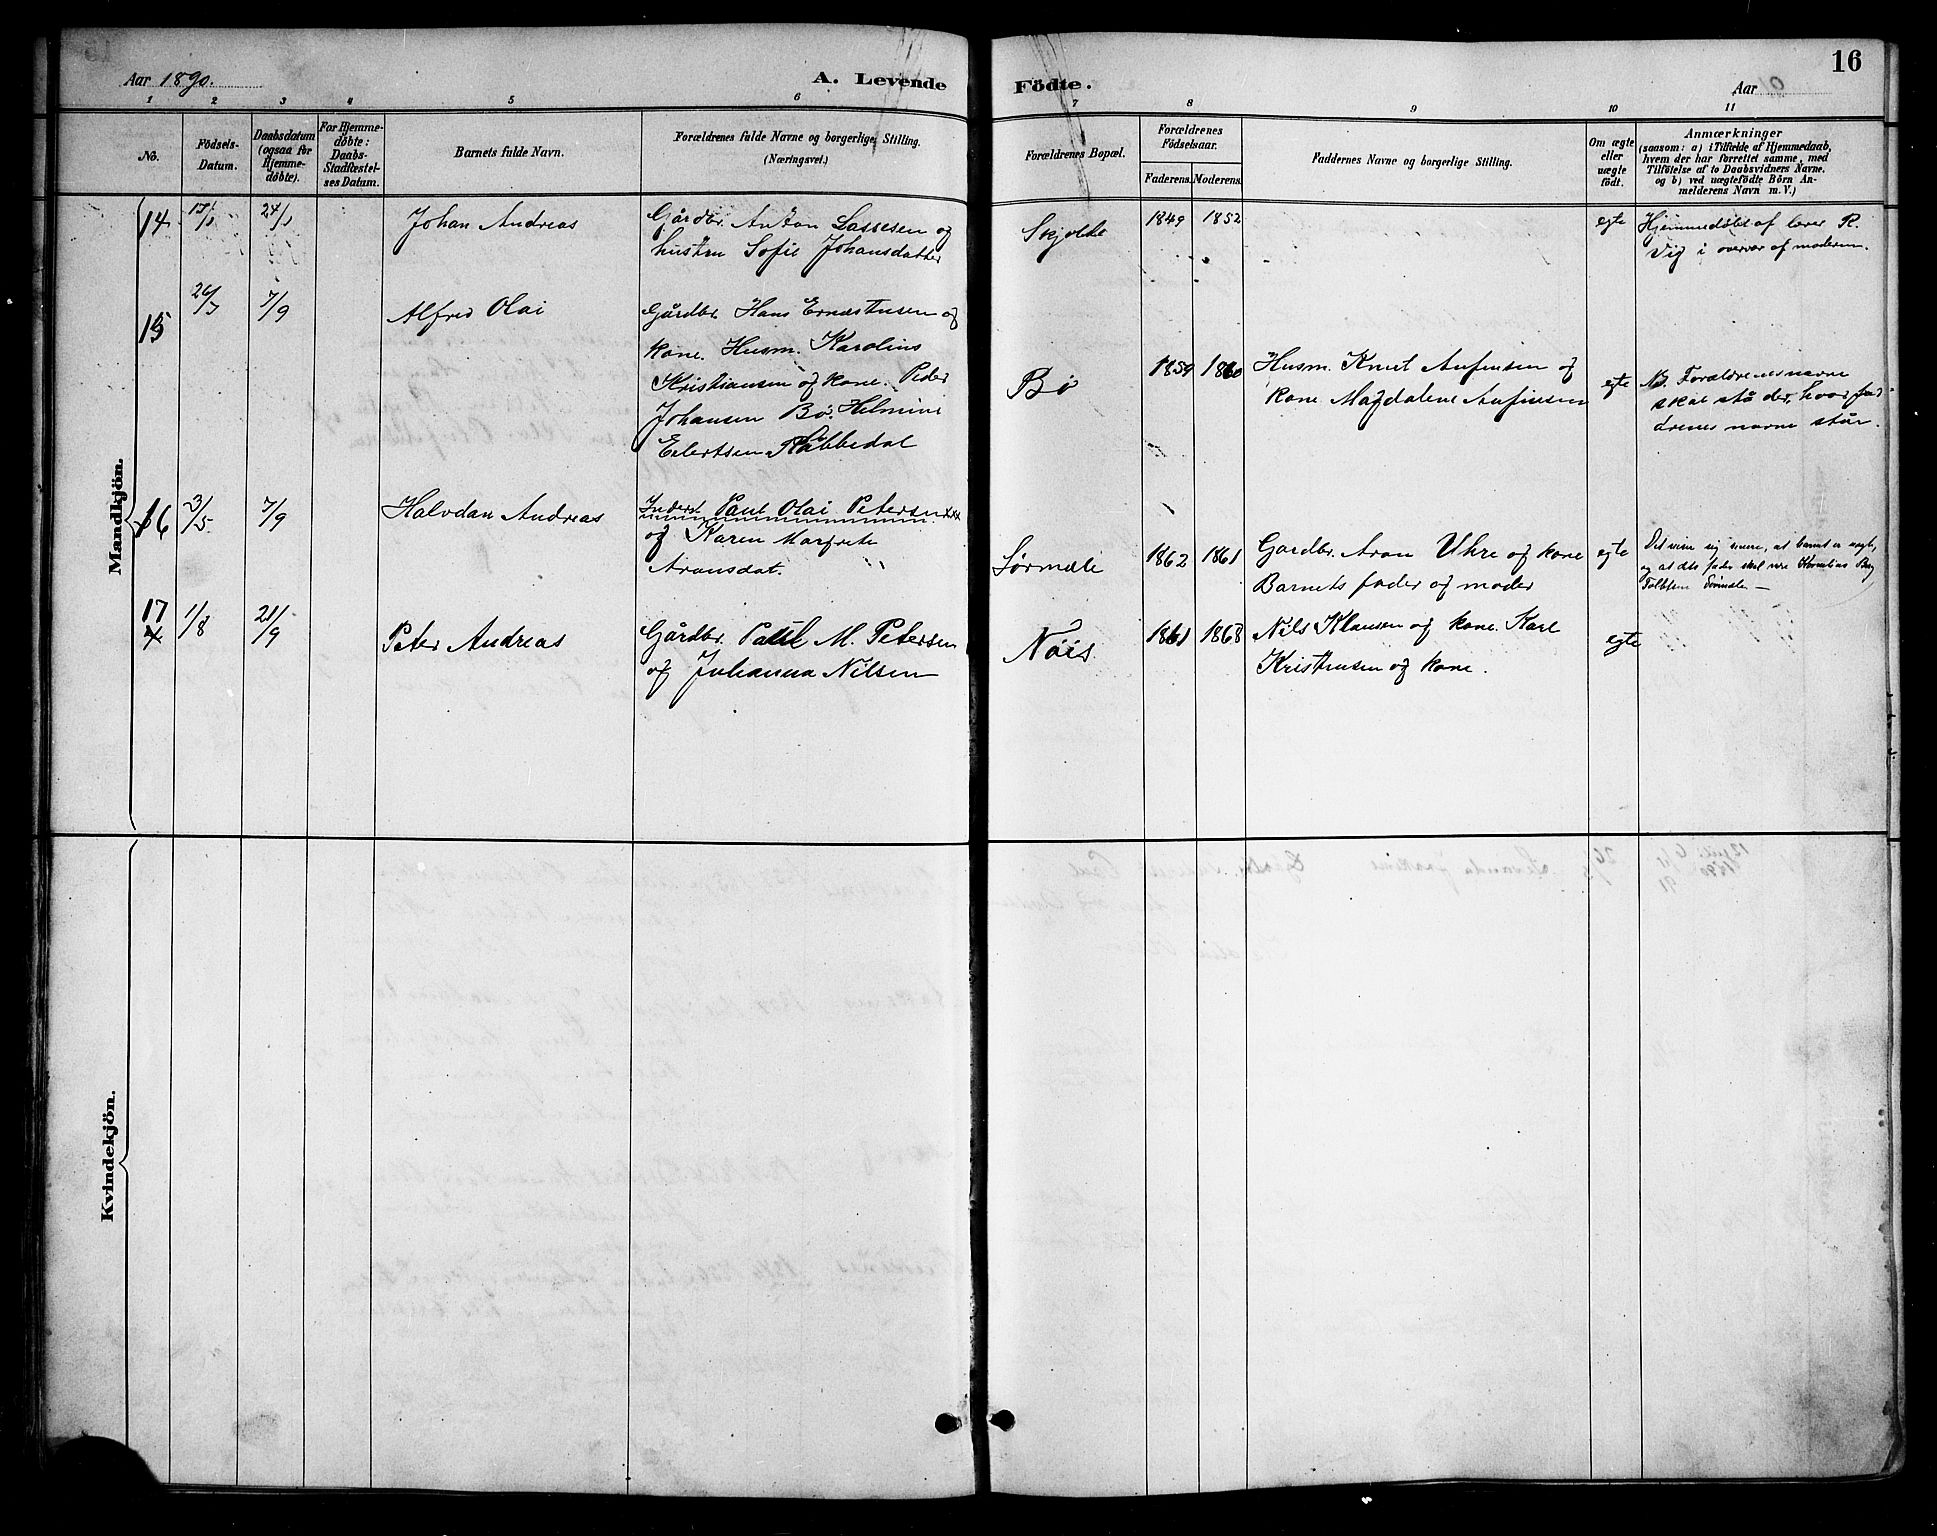 16
Aar 1890.
A. Levende Födte.
Aar
1 2 3 4 5 6 7 8 9 10 11
No.
Födsels-
Datum.
Daabsdatum
(ogsaa for
Hjemme-
döbte).
For Hjemme-
döbte:
Daabs-
Stadfæstel-
ses Datum.
Barnets fulde Navn.
Forældrenes fulde Navne og borgerlige Stilling.
(Næringsvei.)
Forældrenes Bopæl.
Forældrenes
Födselsaar.
Faderens. Moderens.
Faddernes Navne og borgerlige Stilling.
Om ægte
eller
uægte
födt.
Anmærkninger
(saasom: a) i Tilfælde af Hjemmedaab,
hvem der har forrettet samme, med
Tilföielse af to Daabsvidners Navne,
og b) ved uægtefödte Börn An-
melderens Navn m. V.)
Mandkjön.
14
24/1
Johan Andreas
Gårdbr. Anton Lassesen og
hustru Sofie Johansdatter
1849 1852
egte
Hjemmedøbt af lærer R.
Vig i overvær af moderen.
15
7/9
Alfred Olai
Gårdbr. Hans Ernestusen og
kone. Husm. Karolius
Kristiansen og kone. Peder
Johansen Bø. Helmine
Eilertsen
Bø
1859 1860
Husm. Knut Anfinsen og
kone Magdalene Anfinsen
egte
NB. Forældrenes navne
skal stå der, hvor fad-
drenes navne står.
16
3/5
7/9
Halvdan Andreas
Inderst Paul Olai Petersen
og Karen Margrete
Aronsdat.
Sørmæle
1862 1861
Gardbr. Aron Uhre og kone
Barnets fader og moder
egte
Det viser sig senere, at barnet er uægte,
og at dets fader skal være Kornelius Berg
17
1/8
21/9
Peter Andreas
Gårdbr. Paul M. Petersen
og Julianna Nilsen
Nøis
1861 1868
Nils Klausen og kone. Karl
Kristensen og kone.
egte
Kvindekjön.